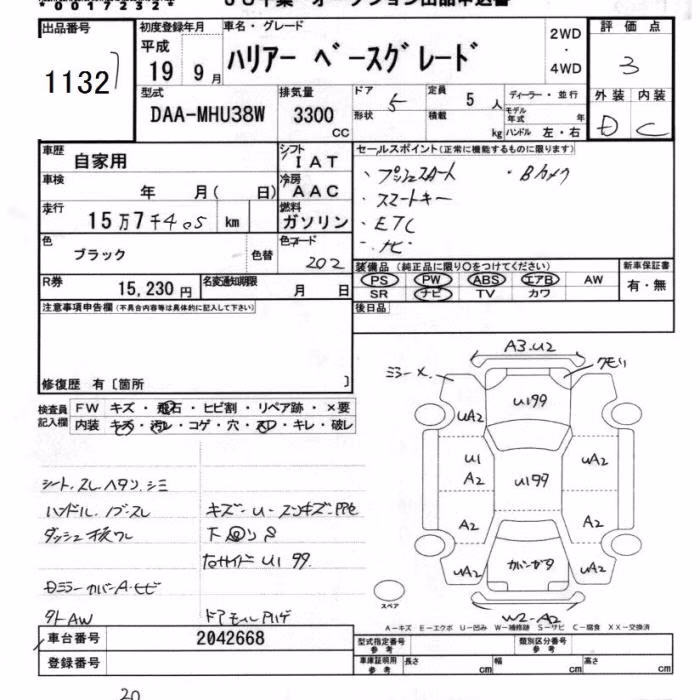 出品番号
1132
初度登録年月
平成
19 9月
車名・グレード
ハリアー ベースグレード
2WD
・
4WD
評価点
3
外装 内装
D C
型式
DAA-MHU38W
排気量
3300
cc
ドア
5
形状
定員
5 人
積載
kg
ディーラー・並行
モデル年式 年
ハンドル 左・右
車歴
自家用
シフト
IAT
車検
年 月( 日)
冷房
AAC
走行
15万7千405 km
燃料
ガソリン
色
ブラック
色替
色コード
202
R券
15,230 円
名変通知期限
月 日
セールスポイント(正常に機能するものに限ります)
・プッシュスタート ・Bカメラ
・スマートキー
・ETC
・ナビ
装備品 (純正品に限り○をつけてください)
PS PW ABS エアB AW
SR ナビ TV カワ
新車保証書
有・無
後日品
注意事項申告欄(不具合内容等は具体的に記入して下さい)
修復歴 有〔箇所 〕
検査員
記入欄
FW キズ・飛石・ヒビ割・リペア跡・×要
内装 キズ・汚レ・コゲ・穴・スレ・キレ・破レ
シート.スレ ヘタリ.シミ
ハンドル.ノブスレ
キズ・U・スリキズ
右サイド U1 99.
ドアモール
外AW
A3.U2
ミラーX
U199
UA2
U1
A2
U199
UA2
A2
A2
UA2
UA2
W2-A2
スペア
A-キズ E-エクボ U-凹み W-補修跡 S-サビ C-腐食 XX-交換済
車台番号
2042668
登録番号
型式指定番号
参考
類別区分番号
参考
車庫証明用
参考
長さ cm
幅 cm
高さ cm
20